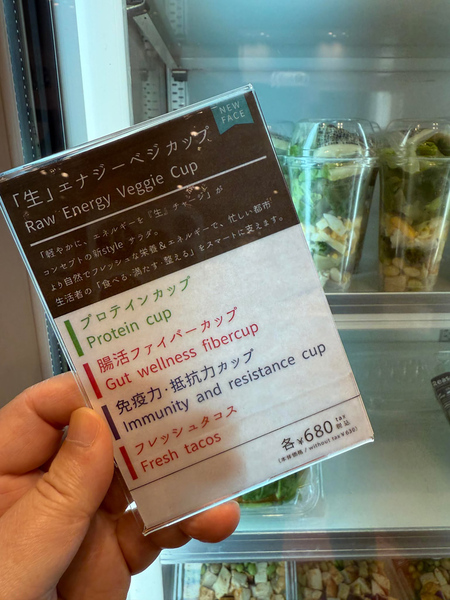 NEW
FACE
「生」エナジーベジカップ
Raw Energy Veggie Cup
「軽やかに、エネルギーを『生』チャージ」が
コンセプトの新style サラダ。
より自然でフレッシュな栄養&エネルギーで、忙しい都市
生活者の「食べる・満たす・整える」をスマートに支えます。
プロテインカップ
Protein cup
腸活ファイバーカップ
Gut wellness fibercup
免疫力・抵抗力カップ
Immunity and resistance cup
フレッシュタコス
Fresh tacos
各¥680 tax 税込
(本体価格 / without tax ¥630)